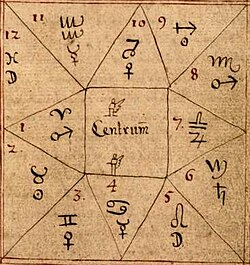 11 ♒
10 ♑ ♀
9 ♐
12 ♓ D
8 ♏ ♂
1 ♈ ♂
Centrum
7. ♎ ♃
2 ♉ ☉
6 ♍ ♄
3. ♊ ♀
4 ♋ ☿
5 ♌ D